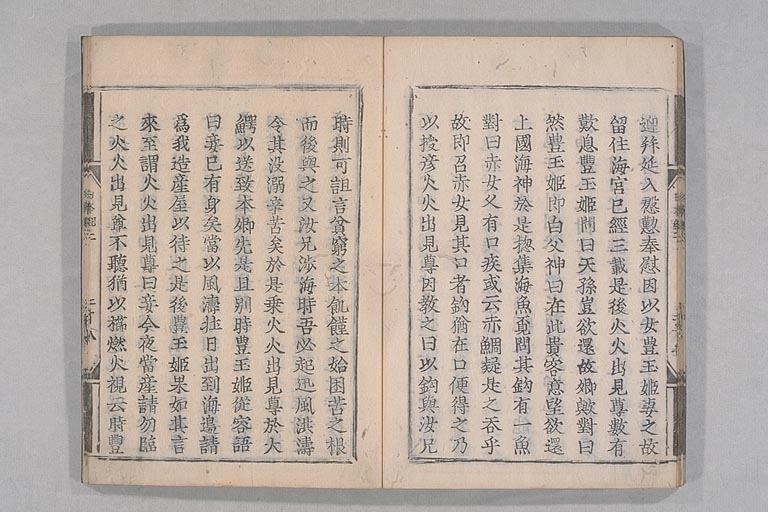 迎拜延入慇懃奉慰因以女豊玉姬妻之故
留住海宮已經三載是後火火出見尊數有
歎息豊玉姬問曰天孫豈欲還故鄉歟對曰
然豊玉姬即白父神曰在此貴客意望欲還
上國海神於是摠集海魚覓問其鈎有一魚
對曰赤女久有口疾或云赤鯛疑是之吞乎
故即召赤女見其口者鈎猶在口便得之乃
以授彥火火出見尊因教之曰以鈎與汝兄
時則可詛言貧窮之本飢饉之始困苦之根
而後與之又汝兄涉海時吾必起迅風洪濤
令其没溺辛苦矣於是乘火火出見尊於大
鰐以送致本鄉先是且別時豊玉姬從容語
曰妾已有身矣當以風濤壯日出到海邊請
為我造產屋以待之是後豊玉姬果如其言
來至謂火火出見尊曰妾今夜當產請勿臨
之火火出見尊不聽猶以櫛燃火視之時豊